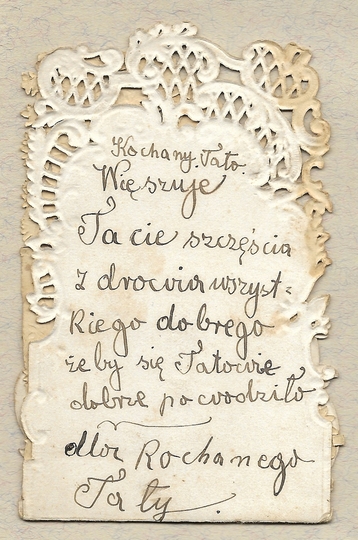 Kochany Tato.
Więszuje
Tacie szczęścia
z drowia wszyst-
kiego dobrego
żeby się Tatowie
dobrze powodziło
dla Kochanego
Taty.